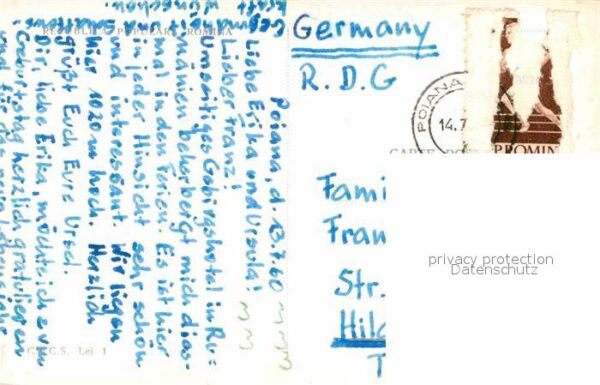 REPUBLICA POPULARĂ ROMÎNĂ
Poiana, d. 13.7.60
Liebe Erika und Ursula!
Lieber Franz!
Umseitiges Gebirgshotel in Ru=
mänien beherbergt mich dies=
mal in den Ferien. Es ist hier
in jeder Hinsicht sehr schön
und interessant. Wir liegen
hier 1020 m hoch. Herzlich
grüßt Euch Eure Ursel.
Dir, liebe Erika, möchte ich zum
Geburtstag herzlich gratulieren
und
Gesundheit und
Schaffens=
kraft wünschen.
C.P.C.S. Lei 1
Germany
R.D.G
POIANA
14.7
P.ROMIN
CARTE PO
Fami
Fran
Str.
Hild
T
privacy protection
Datenschutz